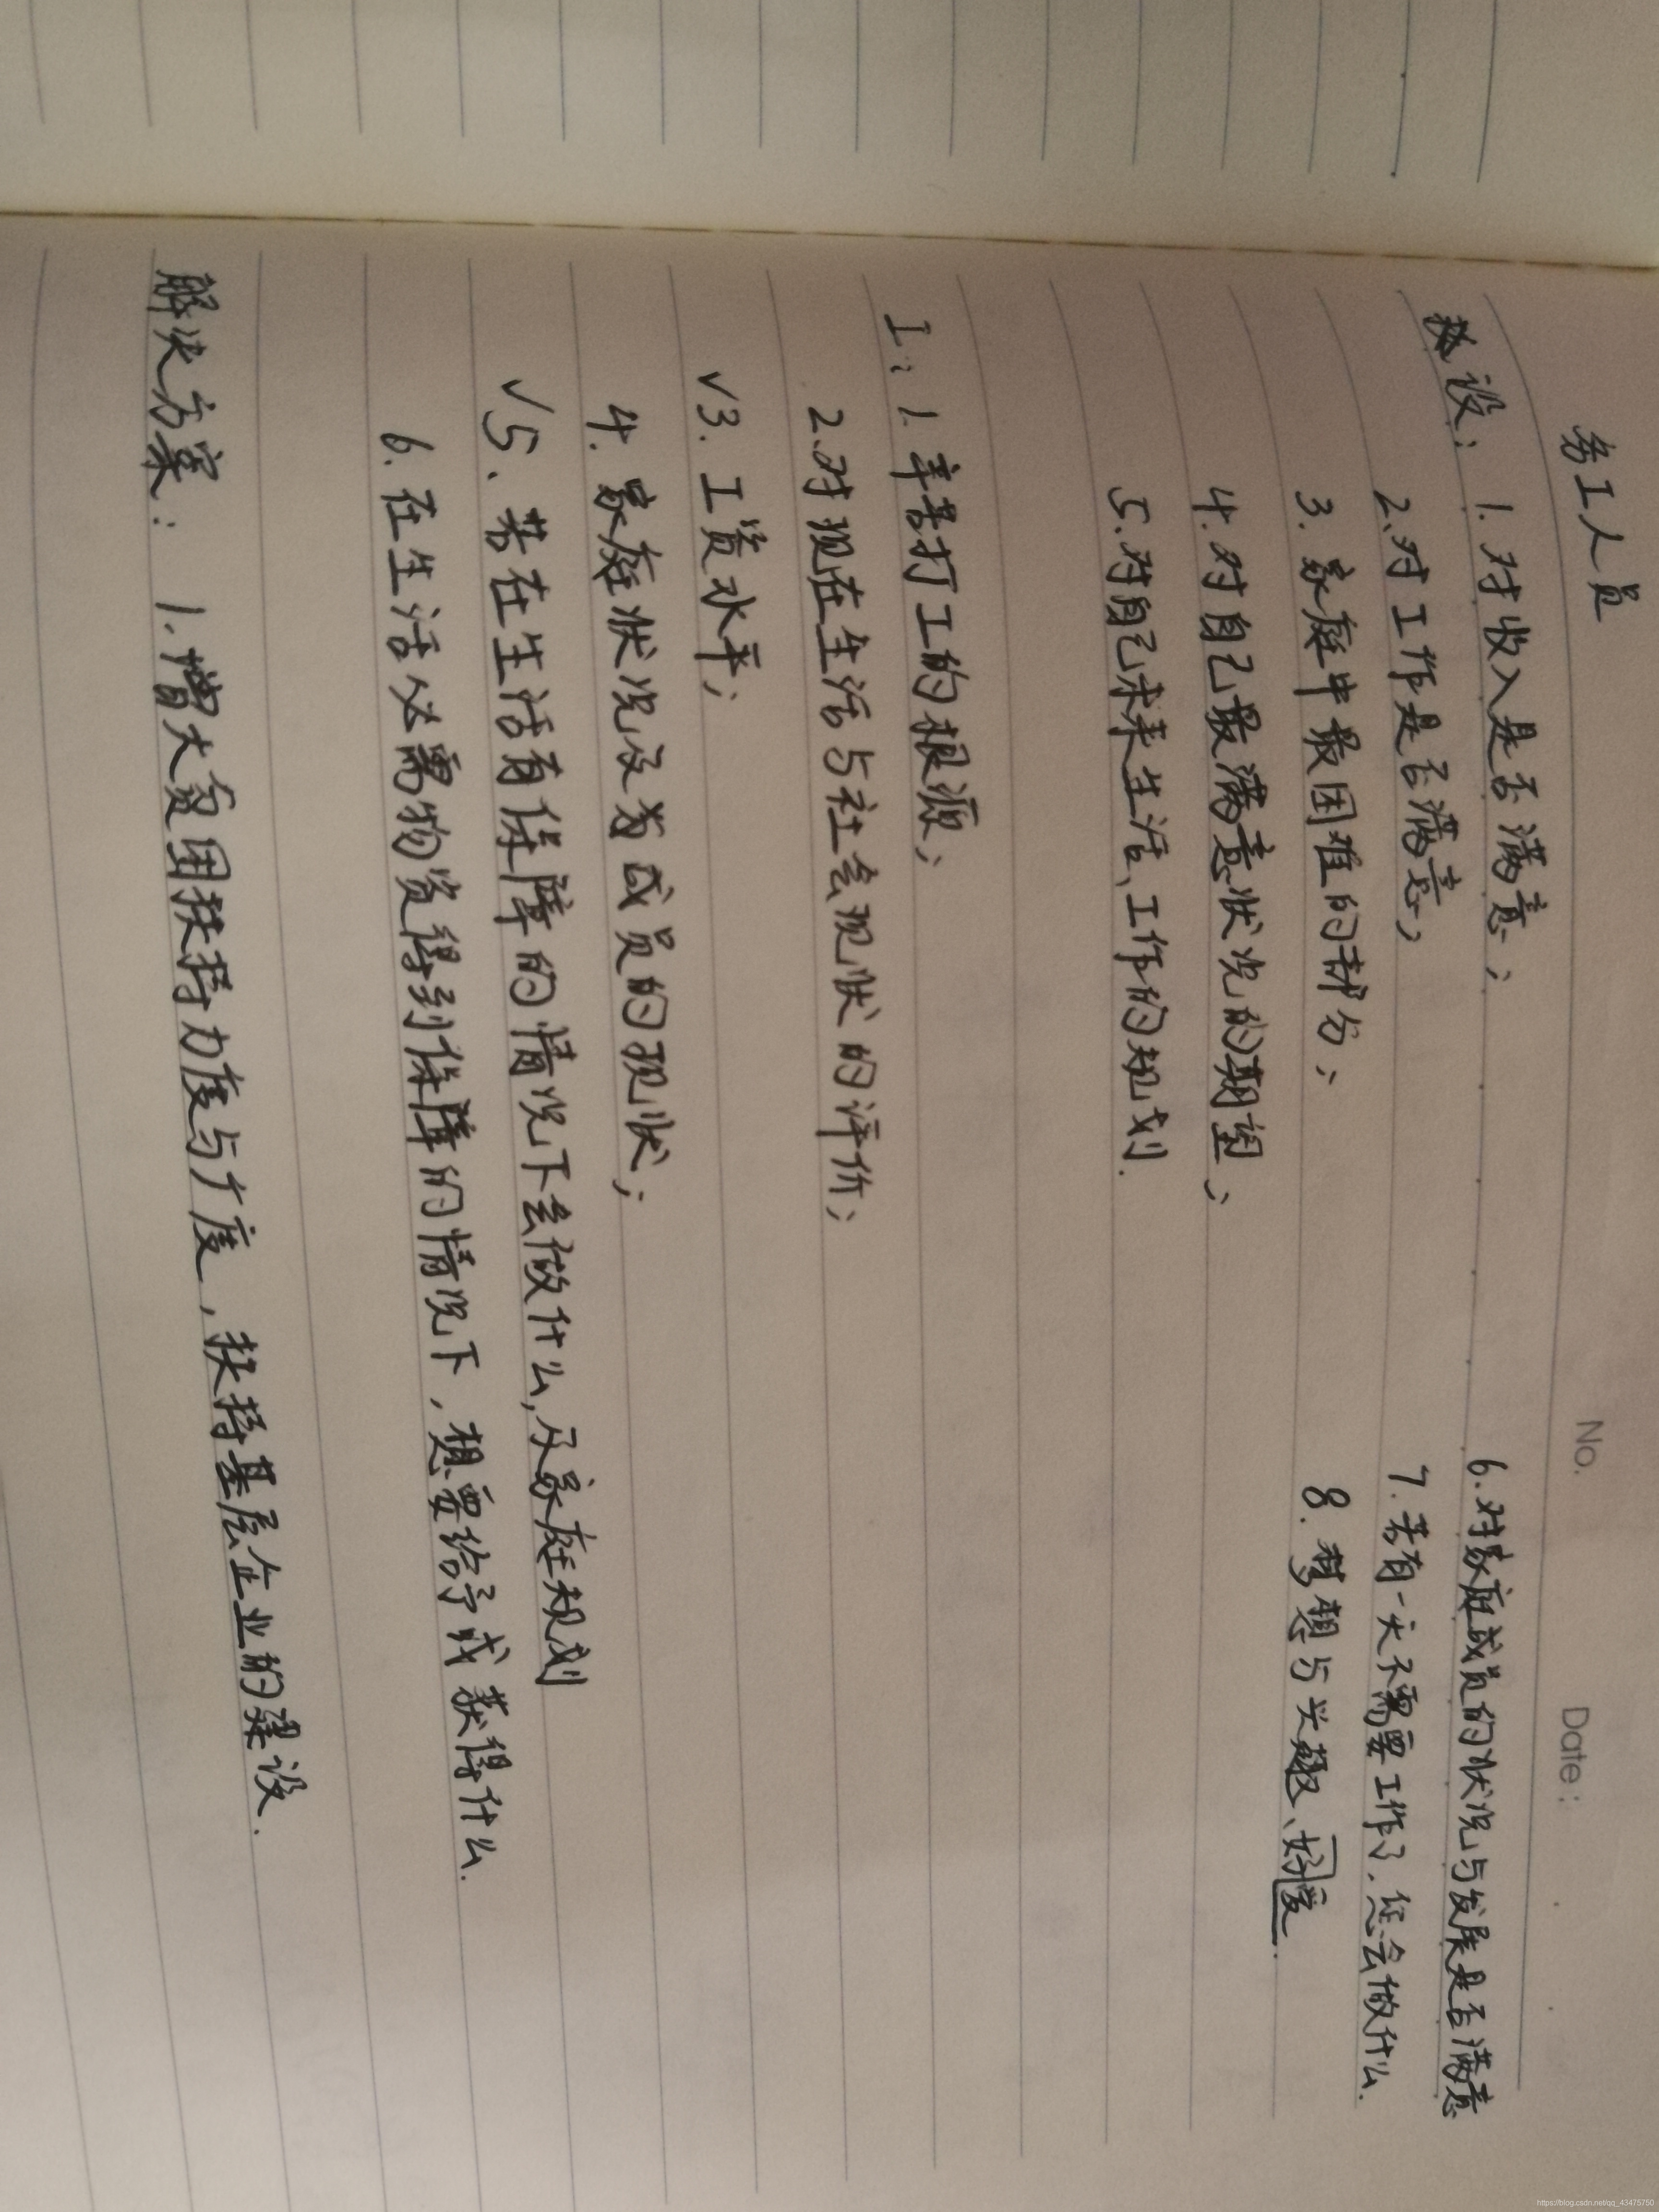 No. Date:
务工人员
设: 1. 对收入是否满意; 6. 对家庭成员的状况与发展是否满意
2. 对工作是否满意; 7. 若有一天不需要工作了, 您会做什么.
3. 家庭中最困难的部分; 8. 梦想与兴趣、好爱.
4. 对自己最满意状况的期望;
5. 对自己未来生活、工作的规划.
I: 1. 辛苦打工的根源;
2. 对现在生活与社会现状的评价;
√3. 工资水平;
4. 家庭状况及为成员的现状;
√5. 若在生活有保障的情况下会做什么, 及家庭规划
6. 在生活必需物资得到保障的情况下, 想要给予或获得什么.
解决方案: 1. 增大贫困扶持力度与广度, 扶持基层企业的建设.
https://blog.csdn.net/qq_43475750